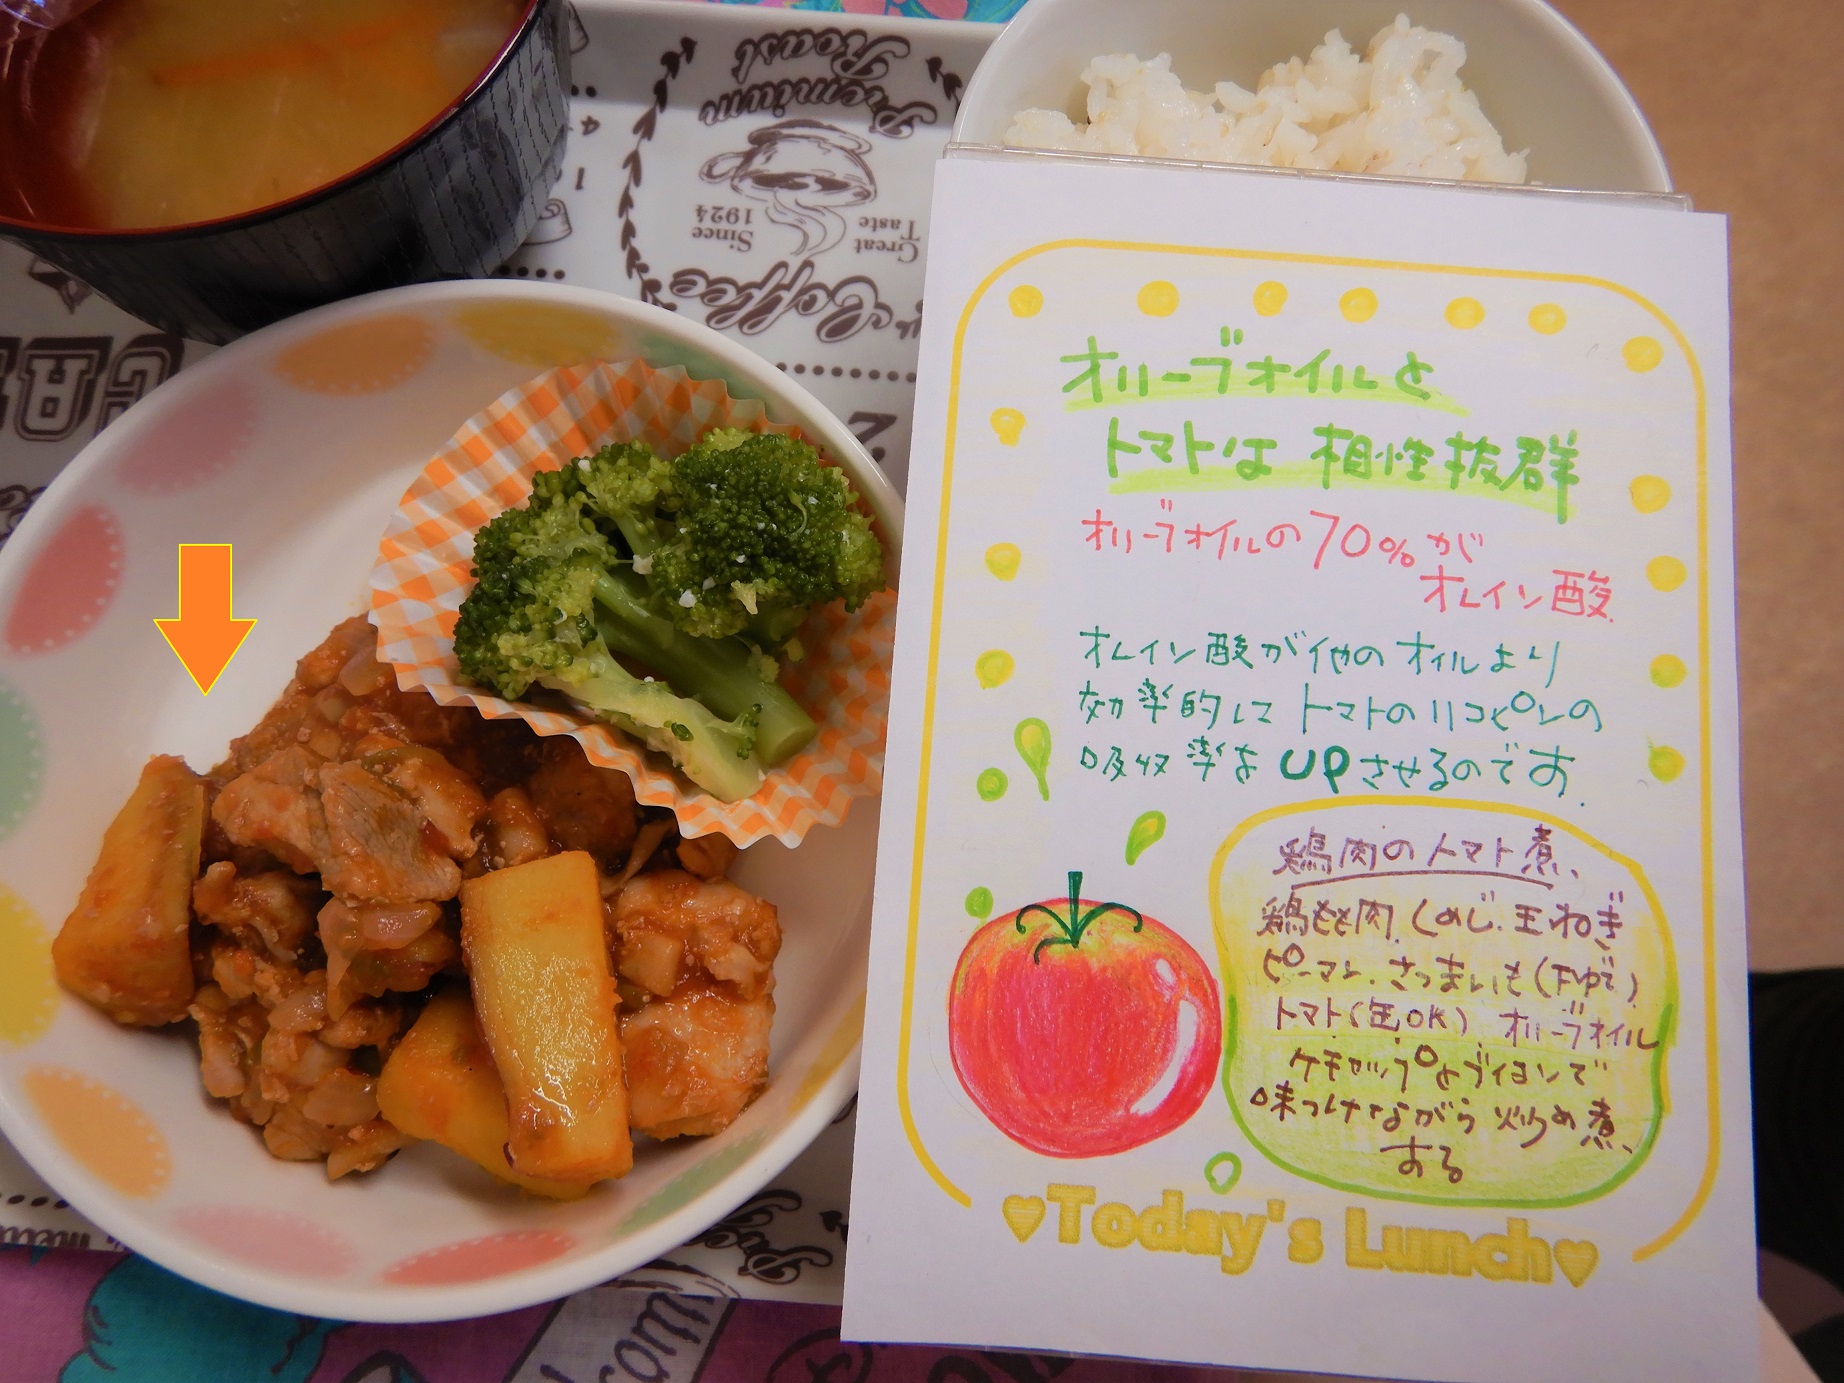 Premium
Roast
Since
1924
Great
Taste
Coffee
オリーブオイルと
トマトは 相性抜群
オリーブオイルの70%が
オレイン酸
オレイン酸が他のオイルより
効率的にトマトのリコピンの
吸収率をUPさせるのです.
鶏肉のトマト煮、
鶏もも肉、しめじ、玉ねぎ
ピーマン、さつまいも(下ゆで)
トマト(缶OK) オリーブオイル
ケチャップとブイヨンで
味つけしながら 炒め煮、
する
♥Today's Lunch♥